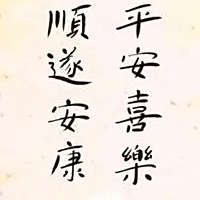 平安喜樂
順遂安康